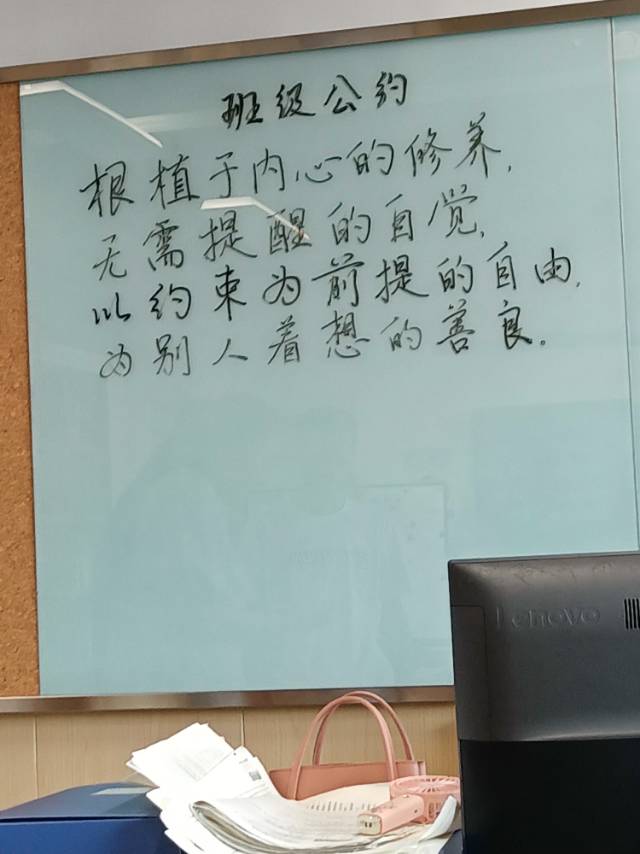 班级公约
根植于内心的修养,
无需提醒的自觉,
以约束为前提的自由,
为别人着想的善良。
Lenovo